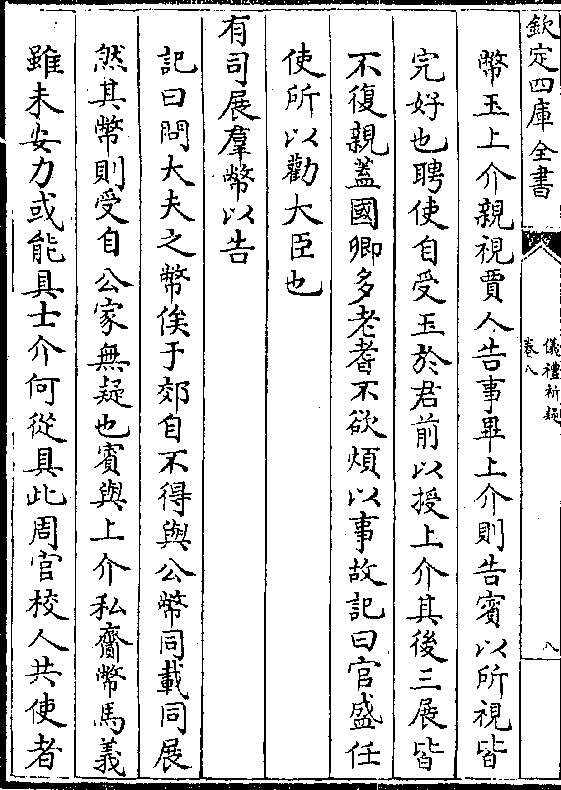 欽定四庫全書
儀禮析疑
卷八
八
幣玉上介親視賈人告事畢上介則告賓以所視皆
完好也聘使自受玉於君前以授上介其後三展皆
不復親蓋國卿多老耆不欲煩以事故記曰官盛任
使所以勸大臣也
有司展羣幣以告
記曰問大夫之幣俟于郊自不得與公幣同載同展
然其幣則受自公家無疑也賓與上介私齎幣馬義
雖未安力或能具士介何從具此周官校人共使者